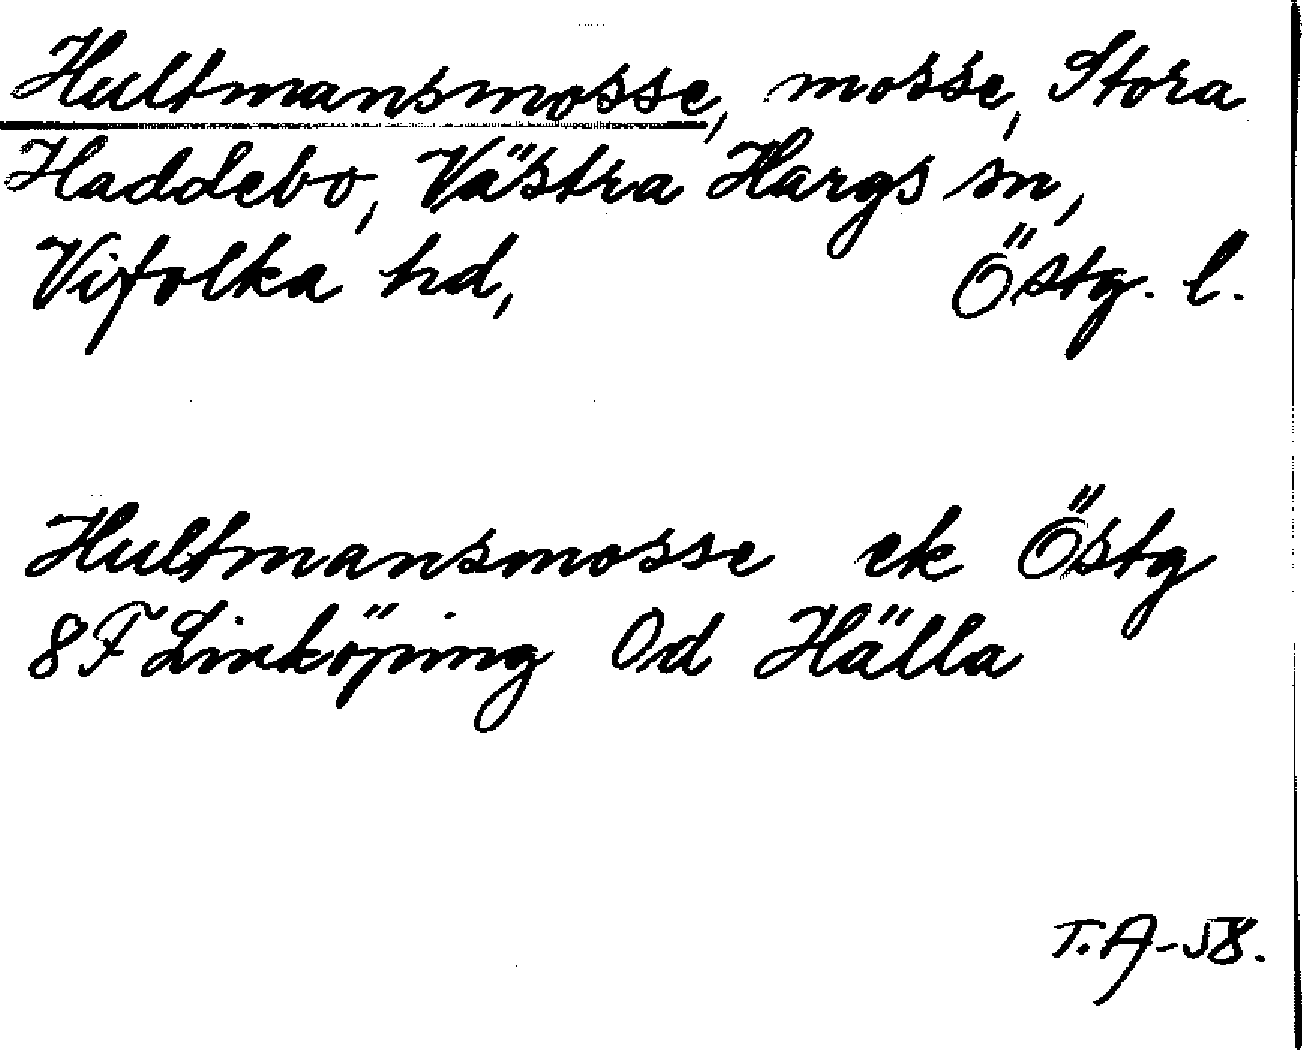 Hultmansmosse, mosse, Stora
Haddebo, Västra Hargs sn,
Vifolka hd, Östg. l.
Hultmansmosse ek Östg
8F Linköping 0d Hälla
T.A-58.